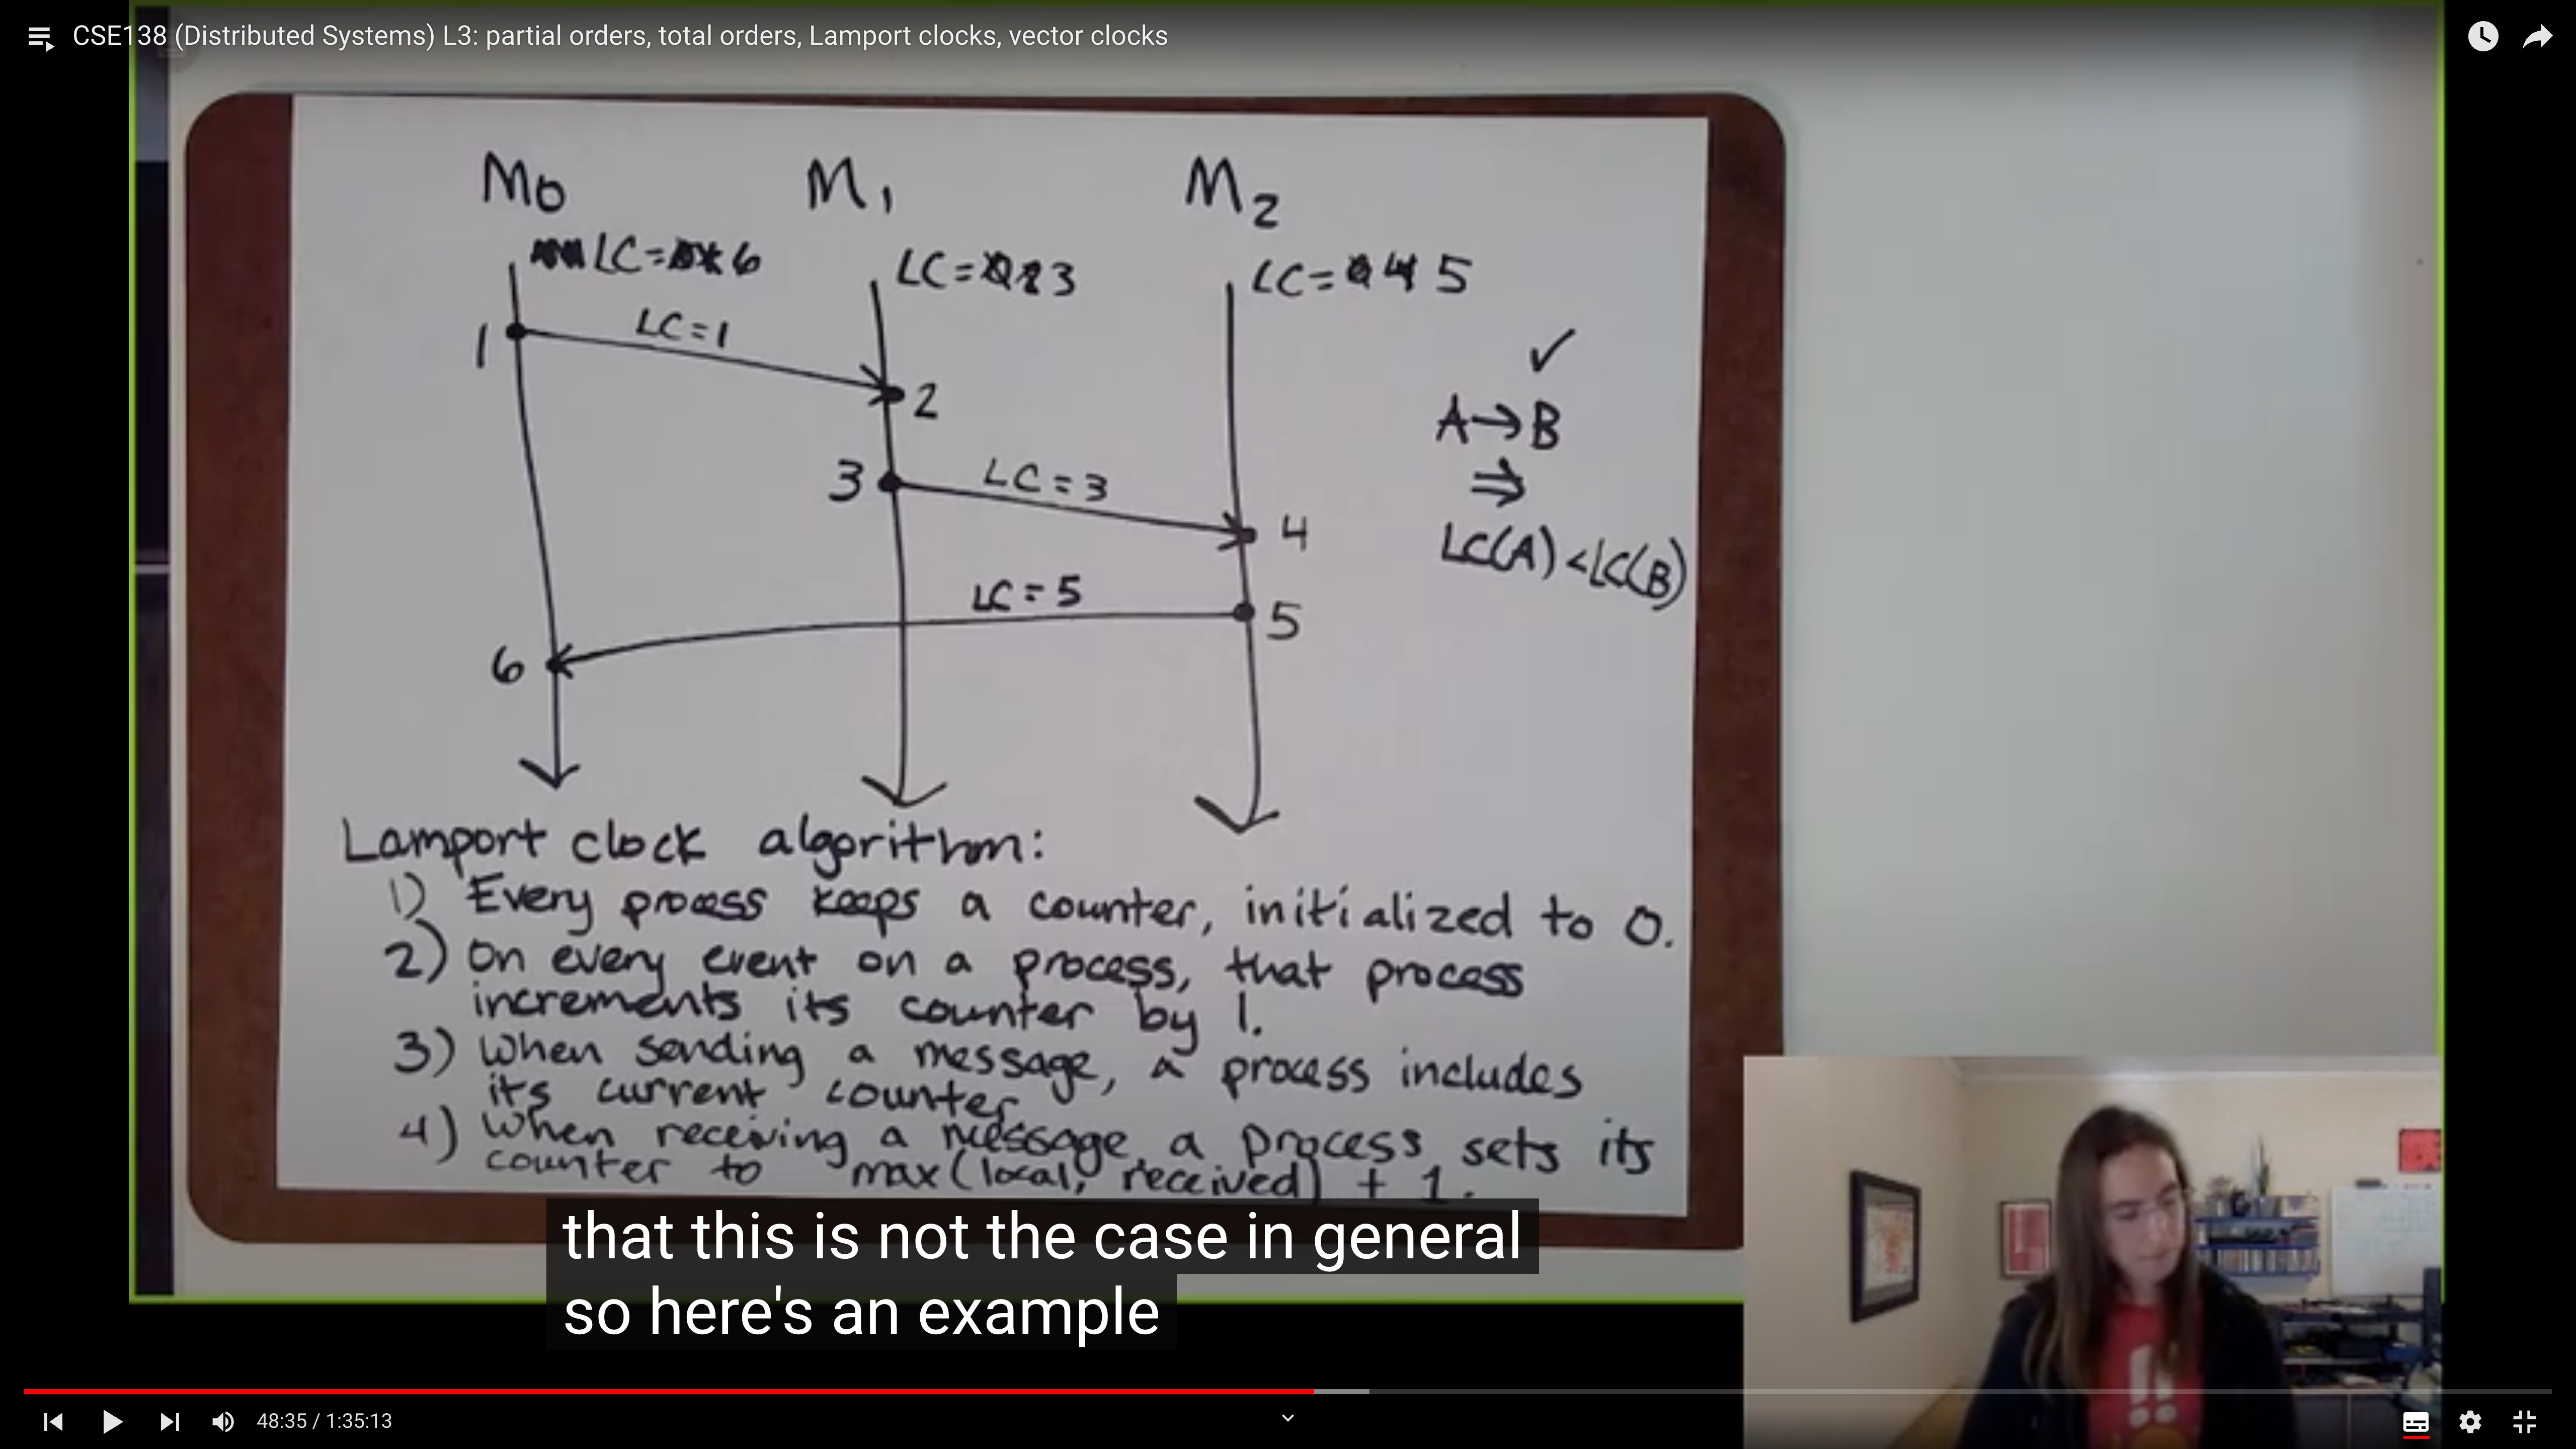 CSE138 (Distributed Systems) L3: partial orders, total orders, Lamport clocks, vector clocks
M0 M1 M2
LC= 6
LC= 3
LC= 4 5
1
LC=1
2
✓
A→B
⇒
LC(A)<LC(B)
3
LC=3
4
LC=5
5
6
Lamport clock algorithm:
1) Every process keeps a counter, initialized to 0.
2) On every event on a process, that process
increments its counter by 1.
3) When sending a message, a process includes
its current counter
4) When receiving a message, a process sets its
counter to max(local, received) + 1.
that this is not the case in general
so here's an example
48:35 / 1:35:13